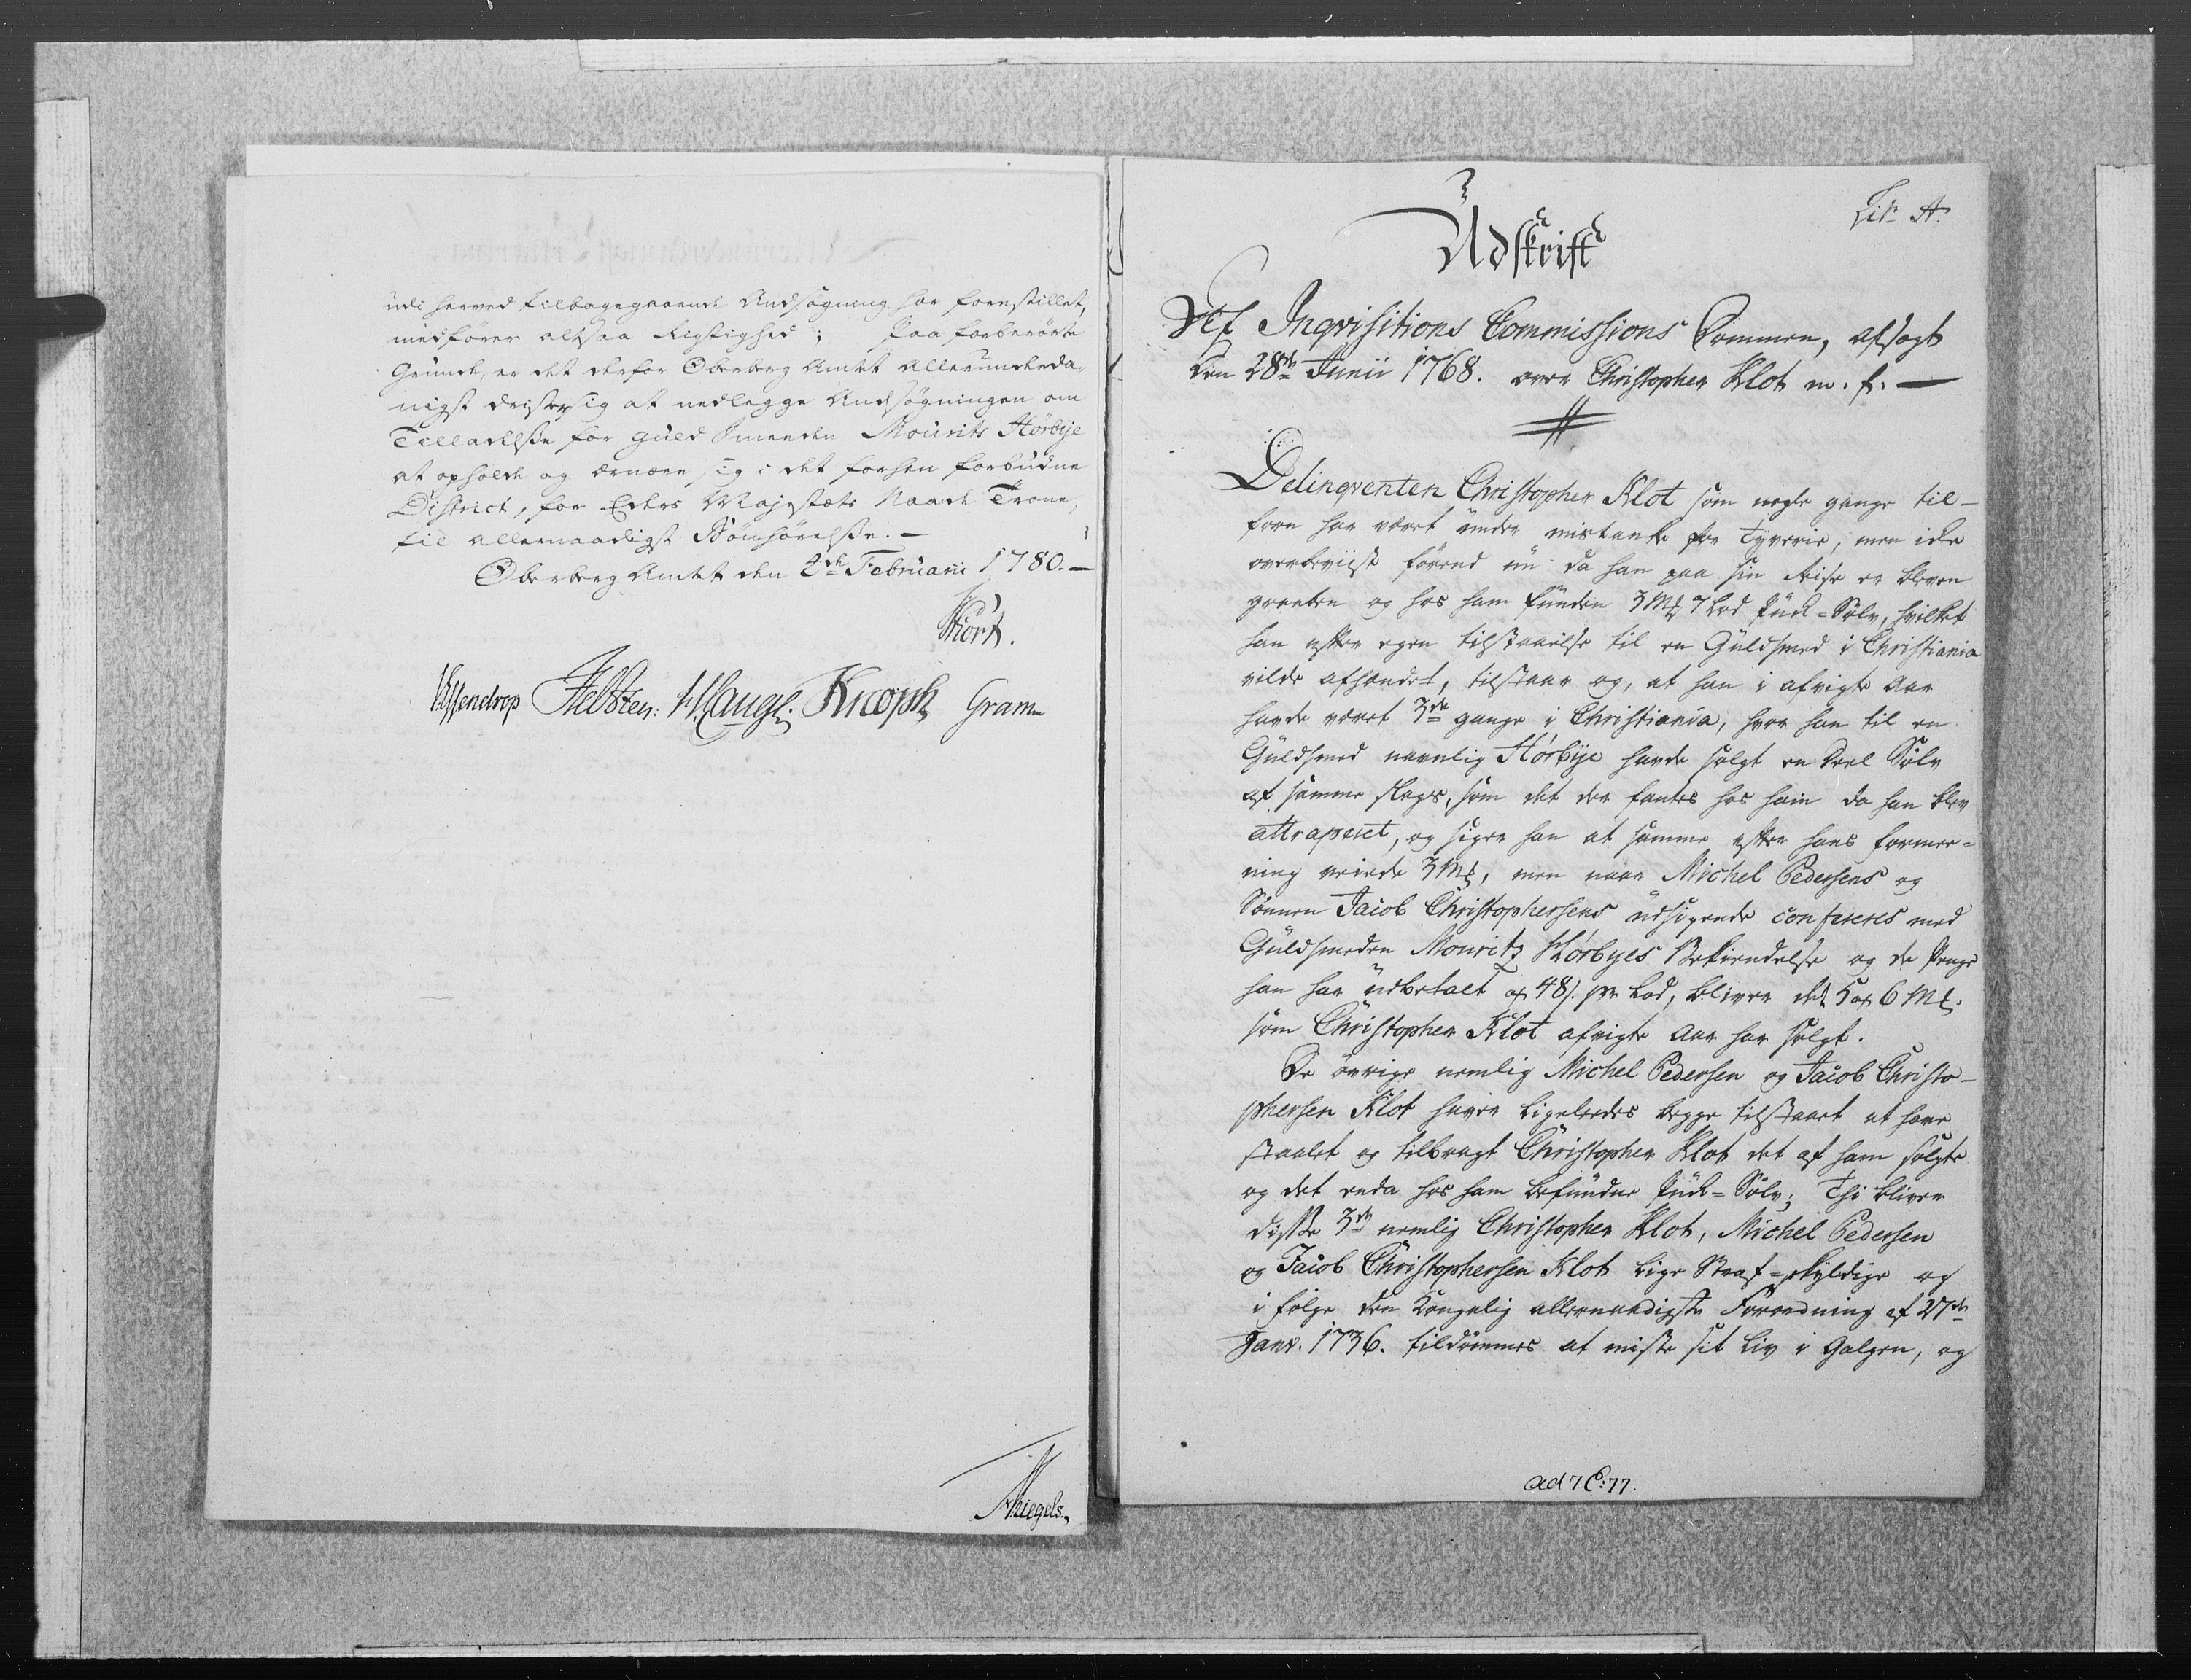 udi herved tilbagegaaende Ansøgning har forestillet,
medfører altsaa Rigtighed; Paa forberørte
Grunde, er det derfor Oberberg Amtet allerunderda-
nigst drister sig at nedlegge Ansøgningen om
Tilladelse for Guld Smeden Mourits Hørbye
at opholde og ernære sig i det forhen forbudne
District, for Eders Majestæts Naade Trone,
til allernaadigst Bønhørelse. —
Oberberg Amtet den 2de Februarii 1780. —
Hiort.
Essendrop Heltzen. Knoph Gram
Lit: A.
Udskrift
Af Inqvisitions Commissions Dommen, afsagt
den 28de Junii 1768. over Christopher Klot m. fl: —
Delinqventen Christopher Klot som nogle gange til-
forn har været under mistanke for Tyverie, men ikke
overbeviist førend nu da han paa sin Reise er bleven
greeben og hos ham funden 3 Mk 7 Lod Puck-Sølv, hvilket
han efter egen tilstaaelse til en Guldsmed i Christiania
vilde afhændet, tilstaar og, at han i afvigte Aar
havde været 3de gange i Christiania, hvor han til en
Guldsmed navnlig Hørbye havde solgt en Deel Sølv
af samme slags, som det der fantes hos ham da han blev
attraperet, og siger han at samme efter hans formee-
ning veiede 3 Mk, men naar Michel Pedersens og
Sønnen Jacob Christophersens udsigende confereres med
Guldsmeden Mouritz Hørbyes Bekiendelse og de Penge
han har udbetalt af 48 s. pr Lod, bliver det 5 a 6 Mk.
som Christopher Klot afvigte Aar har solgt.
De øvrige nemlig Michel Pedersen og Jacob Christo-
phersen Klot haver ligeledes begge tilstaaet at have
staalet og tilbragt Christopher Klot det af ham solgte
og det enda hos ham befundne Puck-Sølv; Thi bliver
disse 3de nemlig Christopher Klot, Michel Pedersen
og Jacob Christophersen Klot lige Straf-skyldige og
i følge den Kongelig allernaadigste Forordning af 27de
Janv. 1736. tildømmes at miste sit Liv i Galgen, og
ad 7 C:77.